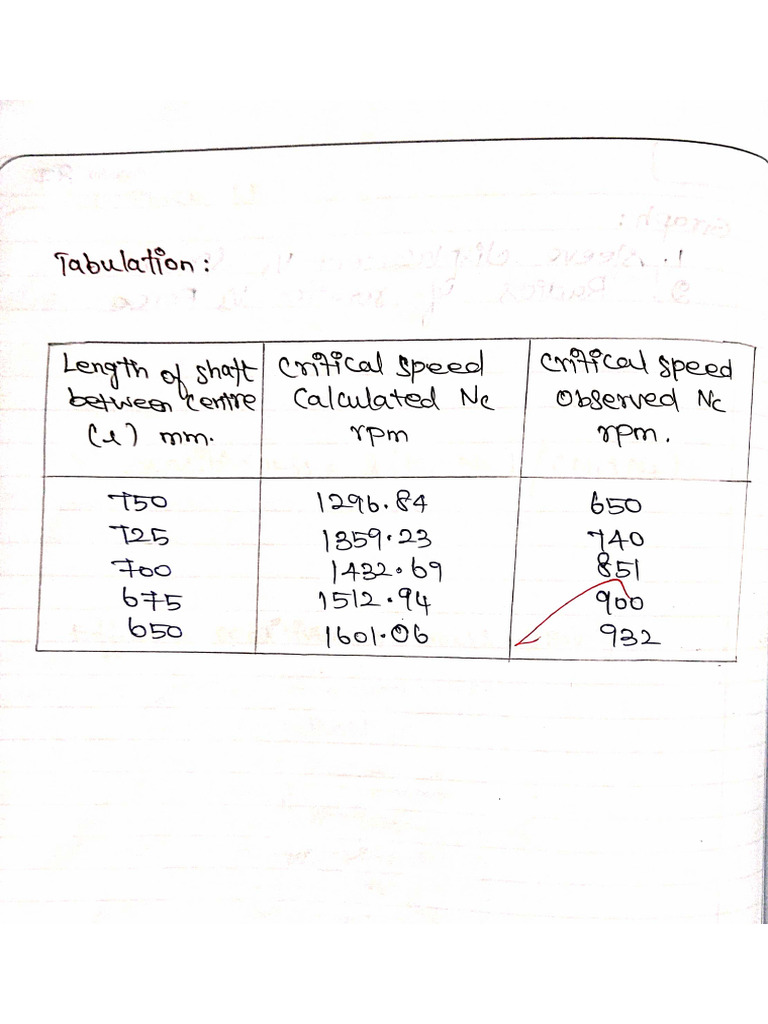 Tabulation:
Length of shaft between centre (l) mm. | Critical speed Calculated Nc rpm | Critical speed Observed Nc rpm.
750 | 1296.84 | 650
725 | 1359.23 | 740
700 | 1432.69 | 851
675 | 1512.94 | 900
650 | 1601.06 | 932